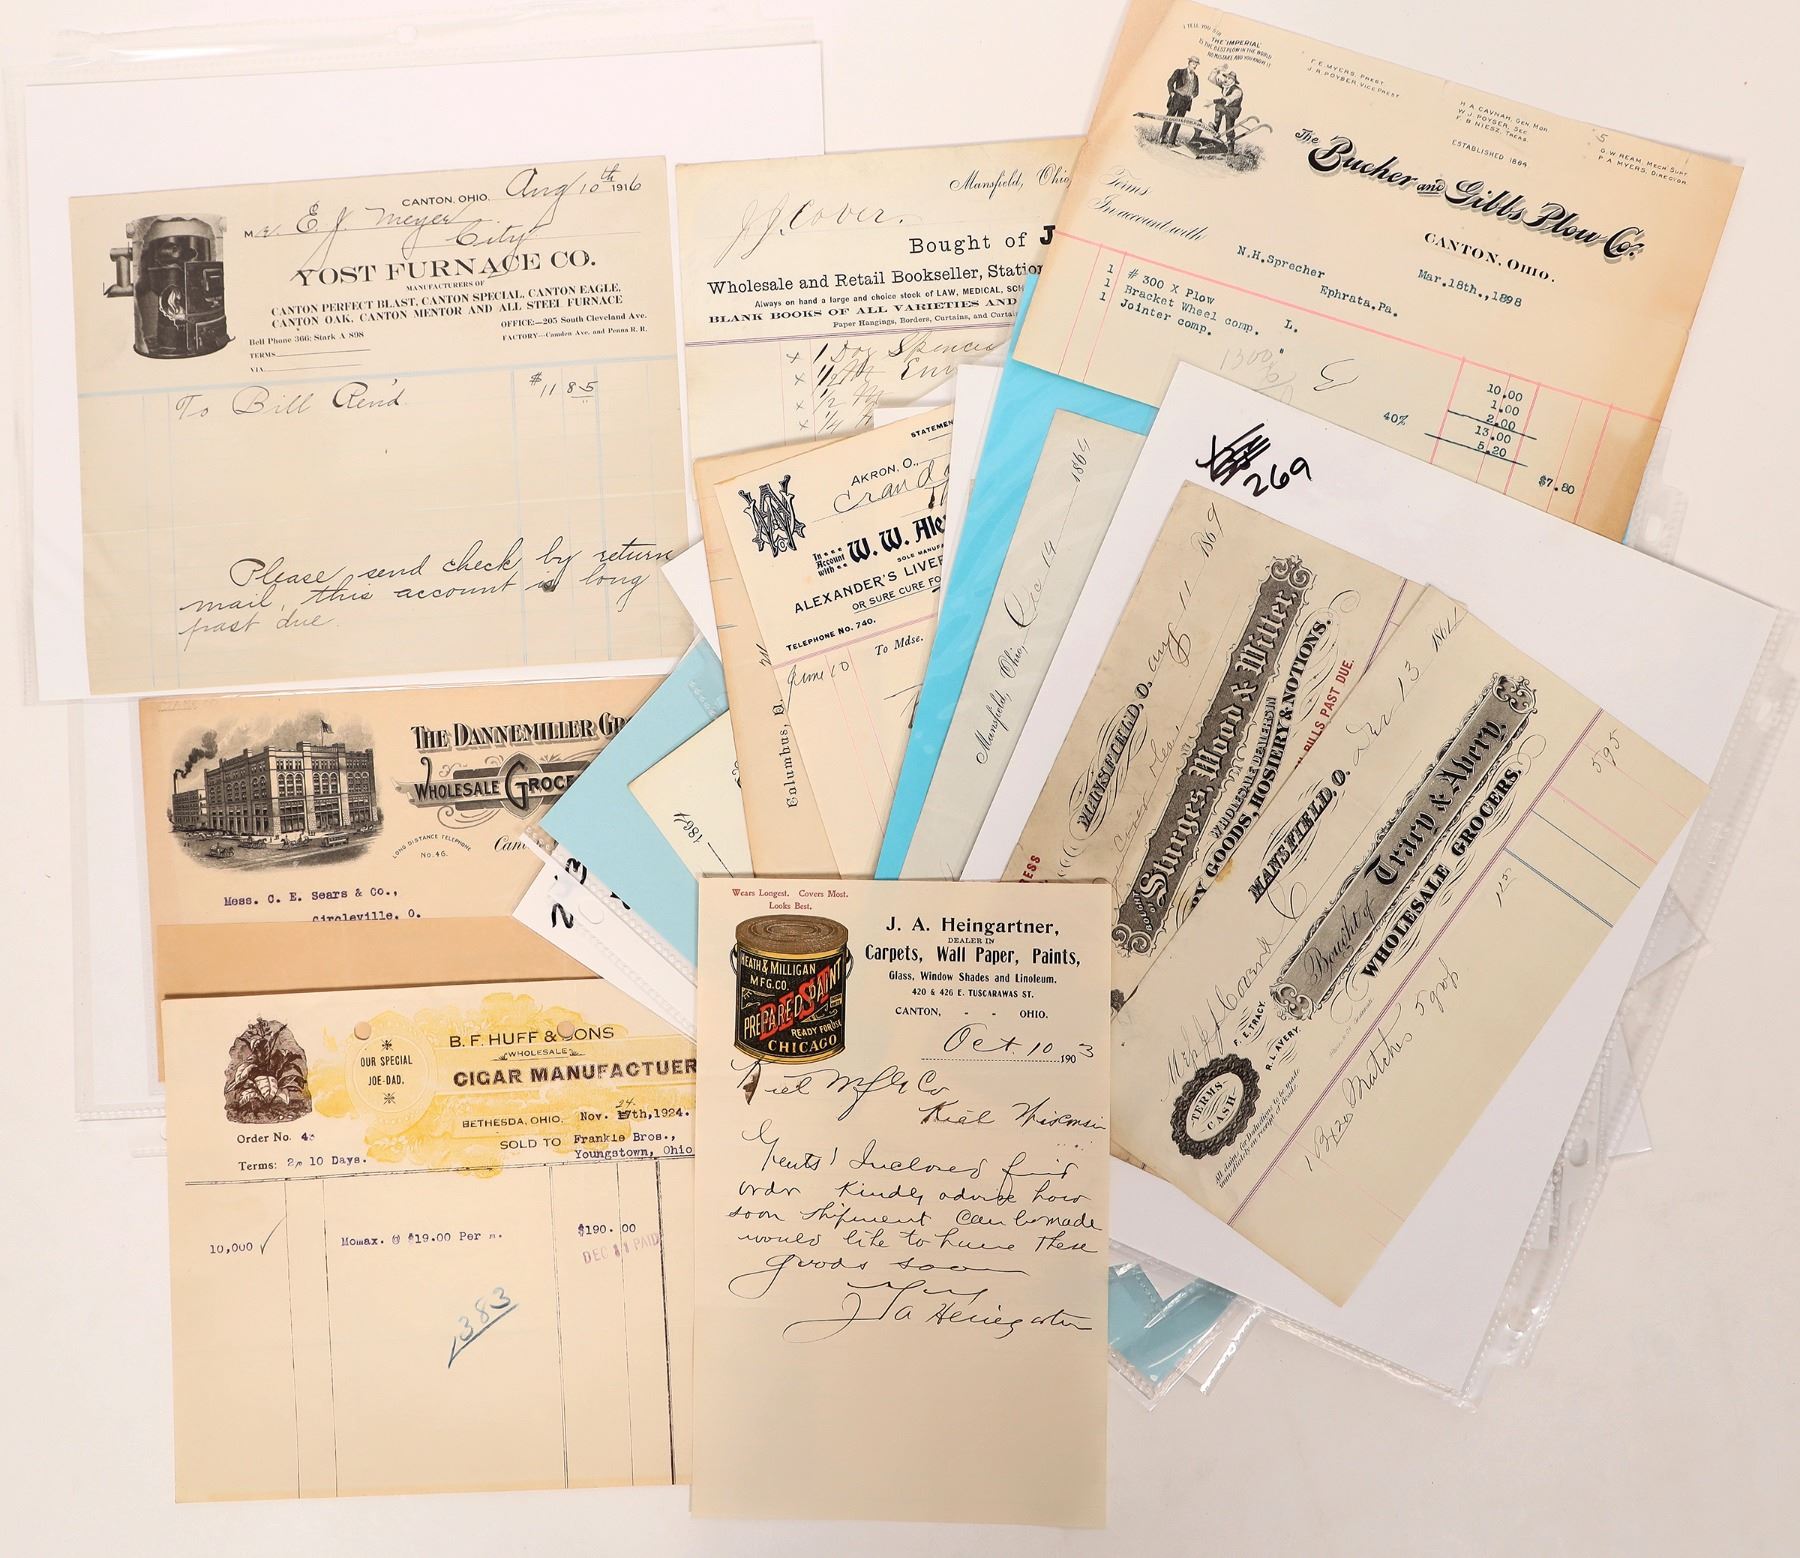 CANTON, OHIO, Aug 10th 1916
Mr. E. J. Meyer
City
YOST FURNACE CO.
MANUFACTURERS OF
CANTON PERFECT BLAST, CANTON SPECIAL, CANTON EAGLE,
CANTON OAK, CANTON MENTOR AND ALL STEEL FURNACE
OFFICE:—205 South Cleveland Ave.
Bell Phone 366; Stark A 898
FACTORY—Camden Ave. and Penna R. R.
TERMS
VIA
To Bill Ren'd. $11 85
Please send check by return
mail, this account is long
past due.
Mansfield, Ohio,
J. J. Cover.
Bought of J
Wholesale and Retail Bookseller, Station
Always on hand a large and choice stock of LAW, MEDICAL, SCH
BLANK BOOKS OF ALL VARIETIES AND
Paper Hangings, Borders, Curtains, and Curtai
x 1 Doz Spencer
x 1/2 M Env
x 1/2 M
x 1/4
I TELL YOU SIR
THE 'IMPERIAL'
IS THE BEST PLOW IN THE WORLD
NO MISTAKE AND YOU KNOW IT
F. E. MYERS, PREST.
J. R. POYSER, VICE PREST
H. A. CAVNAH, GEN. MGR.
W. J. POYSER, SEC.
F. B. NIESZ, TREAS.
ESTABLISHED 1864
G. W. REAM, MECH. SUPT.
P. A. MYERS, DIRECTOR
The Bucher and Gibbs Plow Co.
CANTON, OHIO.
Terms
In account with
N.H.Sprecher
Ephrata.Pa.
Mar.18th.,1898
1 # 300 X Plow L.
1 Bracket Wheel comp.
1 Jointer comp.
1300
10.00
1.00
2.00
13.00
40% 5.20
$7.80
STATEMEN
AKRON, O.,
In Account with W. W. Ale
SOLE MANUFA
ALEXANDER'S LIVE
OR SURE CURE FO
TELEPHONE No. 740.
June 10 To Mdse.
Columbus, O.
Mansfield, Ohio, Dec 14 186
1867
269
MANSFIELD, O. Aug 11 1869
Sturges, Wood & Witter,
WHOLESALE DEALERS IN
DRY GOODS, HOSIERY & NOTIONS.
BILLS PAST DUE.
RESS
MANSFIELD, O. 13 186
Bought of Tracy & Avery,
WHOLESALE GROCERS.
F. E. TRACY.
R. L. AVERY.
TERMS CASH
All claim for deductions to be made
immediately on receipt of Goods.
Matches 5 gro
595
THE DANNEMILLER GR
WHOLESALE GROCE
LONG DISTANCE TELEPHONE
No. 46.
Mess. C. E. Sears & Co.,
Circleville, O.
OUR SPECIAL
JOE-DAD.
B. F. HUFF & SONS
WHOLESALE
CIGAR MANUFACTUER
BETHESDA, OHIO, Nov. 24 17th,1924.
Order No. 4
SOLD TO Frankle Bros.,
Youngstown, Ohio
Terms: 2% 10 Days.
10,000 ✓ Momax. @ $19.00 Per m. $190.00
DEC 11 PAID
383
Wears Longest. Covers Most.
Looks Best.
HEATH & MILLIGAN
MFG. CO.
BEST
PREPARED PAINT
READY FOR USE
CHICAGO
J. A. Heingartner,
DEALER IN
Carpets, Wall Paper, Paints,
Glass, Window Shades and Linoleum.
420 & 426 E. TUSCARAWAS ST.
CANTON, - - OHIO.
Oct. 10 1903
Kiel Mfg Co
Kiel Wisconsin
Gents! Inclosed find
order Kindly advise how
soon shipment can be made
would like to have these
goods soon
J A Heingartner